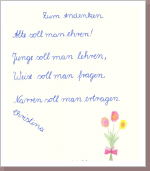 Zum Andenken
Alte soll man ehren!
Junge soll man lehren,
Weise soll man fragen
Narren soll man ertragen
Christina